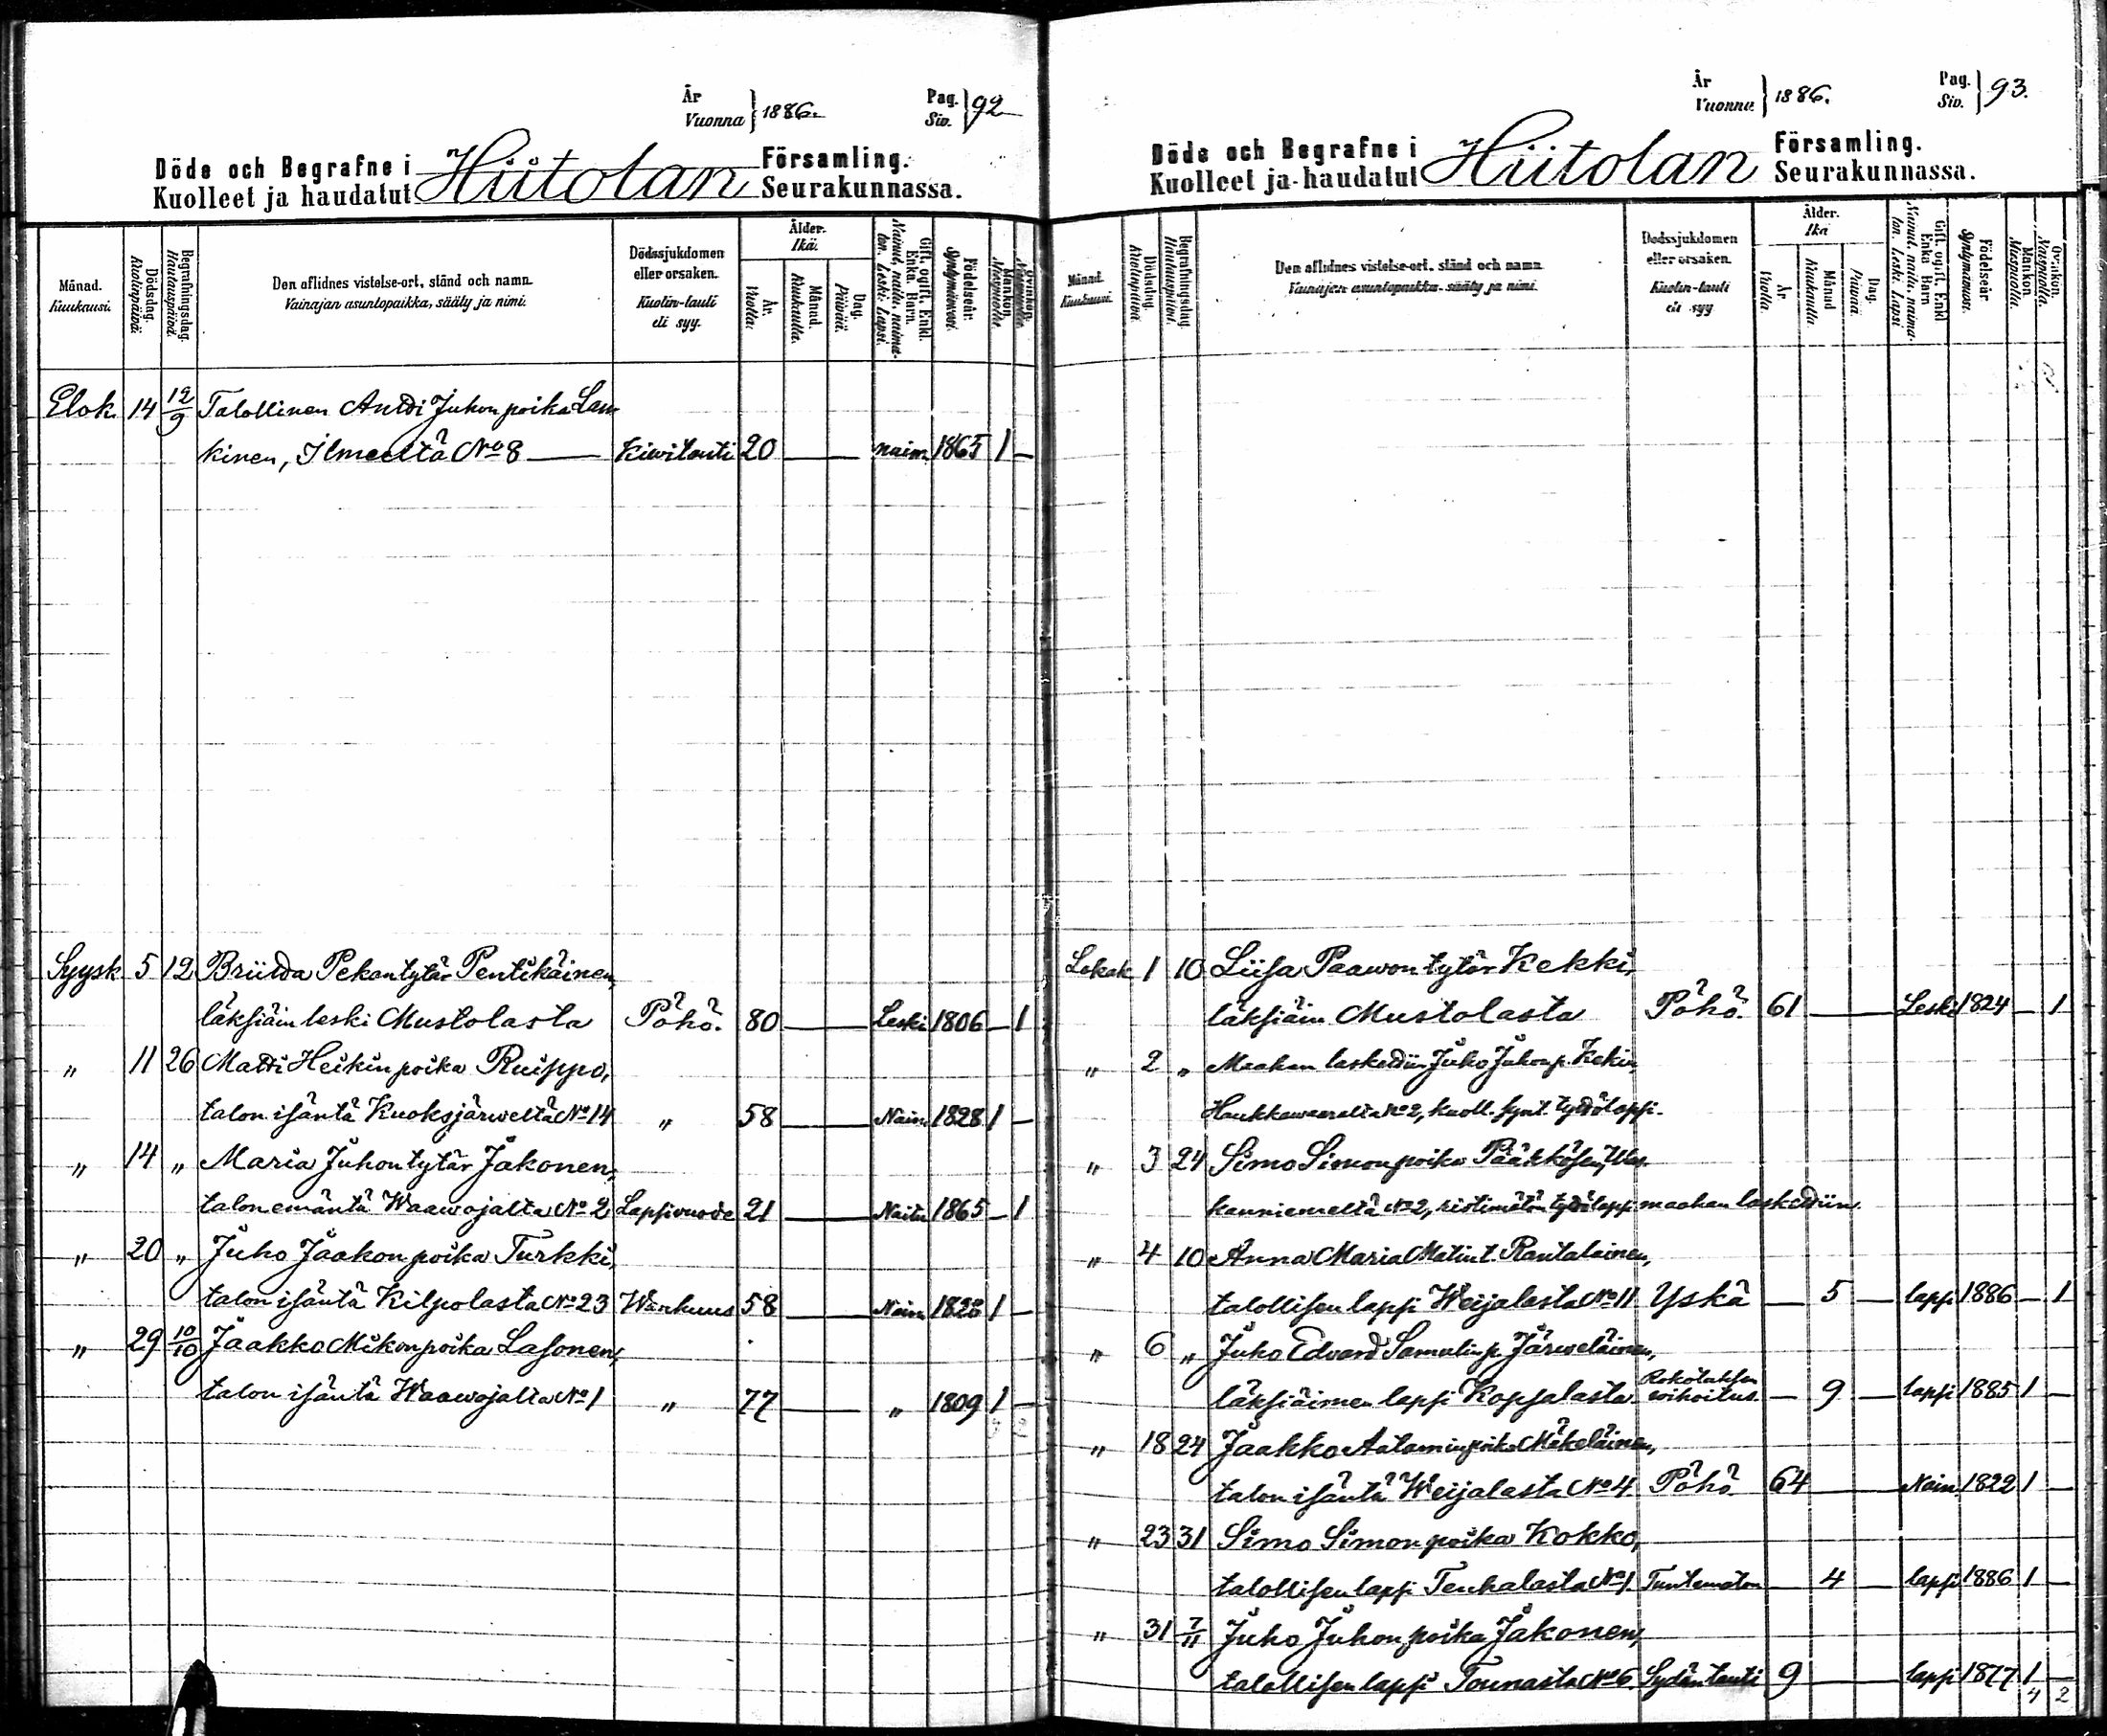 År
Vuonna } 1886.
Pag.
Siv. } 92
Döde och Begrafne i Hiitolan Församling.
Kuolleet ja haudatut Seurakunnassa.
Månad. Kuukausi.
Dödsdag. Kuolinpäivä.
Begrafningsdag. Hautauspäivä.
Den aflidnes vistelse-ort, stånd och namn.
Vainajan asuntopaikka, sääty ja nimi.
Dödssjukdomen eller orsaken.
Kuolin-tauti eli syy.
Ålder. Ikä.
År. Vuotta.
Månad. Kuukautta.
Dag. Päivää.
Gift, ogift, Enkl. Enka. Barn.
Nainut, naitu, naimaton. Leski. Lapsi.
Födelseår. Syntymävuosi.
Mankön. Miespuolta.
Qvinkön. Naispuolta.
Elok. 14 12/9 Talollinen Antti Juhon poika Lan-
kinen, Ilmeeltä No 8 Kiwitauti 20 naim. 1865 1
Syysk 5 12 Briitta Pekan tytär Pentikäinen,
läksiäin leski Mustolasta Pöhö. 80 Leski 1806 1
" 11 26 Matti Heikin poika Ruippo,
talon isäntä Kuoksjärweltä No 14 " 58 Nain. 1828 1
" 14 " Maria Juhon tytär Jakonen,
talon emäntä Waawojalta No 2 Lapsivuode 21 Naitu 1865 1
" 20 " Juho Jaakon poika Turkki,
talon isäntä Kilpolasta No 23 Wanhuus 58 Nain 1828 1
" 29 10/10 Jaakko Mikon poika Lasonen,
talon isäntä Waawojalta No 1 " 77 " 1809 1
År
Vuonna } 1886.
Pag.
Siv. } 93.
Döde och Begrafne i Hiitolan Församling.
Kuolleet ja haudatut Seurakunnassa.
Månad. Kuukausi.
Dödsdag. Kuolinpäivä.
Begrafningsdag. Hautauspäivä.
Den aflidnes vistelse-ort, stånd och namn.
Vainajan asuntopaikka, sääty ja nimi.
Dödssjukdomen eller orsaken.
Kuolin-tauti eli syy.
Ålder. Ikä.
År. Vuotta.
Månad. Kuukautta.
Dag. Päivää.
Gift, ogift, Enkl. Enka. Barn.
Nainut, naitu, naimaton. Leski. Lapsi.
Födelseår. Syntymävuosi.
Mankön. Miespuolta.
Qvinkön. Naispuolta.
Lokak 1 10 Liisa Paawon tytär Kekki,
läksiäin Mustolasta Pöhö. 61 Leski 1824 1
" 2 " Maahan laskettiin Juho Juhon p. Kekin,
Haukkawaaralta No 2, kuoll. synt. tyttölapsi.
" 3 24 Simo Simon poika Pääkkösen,
kanniemeltä No 2, ristimätön tyttölapsi maahan laskettiin.
" 4 10 Anna Maria Matint. Rantalainen,
talollisen lapsi Weijalasta No 11 Yskä 5 lapsi 1886 1
" 6 " Juho Edvard Samulin p. Järweläinen,
läksiäimen lapsi Kopsalasta Rokotuksen wihoitus. 9 lapsi 1885 1
" 18 24 Jaakko Aatamin poika Mäkeläinen,
talon isäntä Weijalasta No 4. Pöhö. 64 Nain. 1822 1
" 23 31 Simo Simon poika Kokko,
talollisen lapsi Tenkalasta No 1. Tuntematon 4 lapsi 1886 1
" 31 7/11 Juho Juhon poika Jakonen,
talollisen lapsi Tounasta No 6. Sydäntauti 9 lapsi 1877 1
4 2